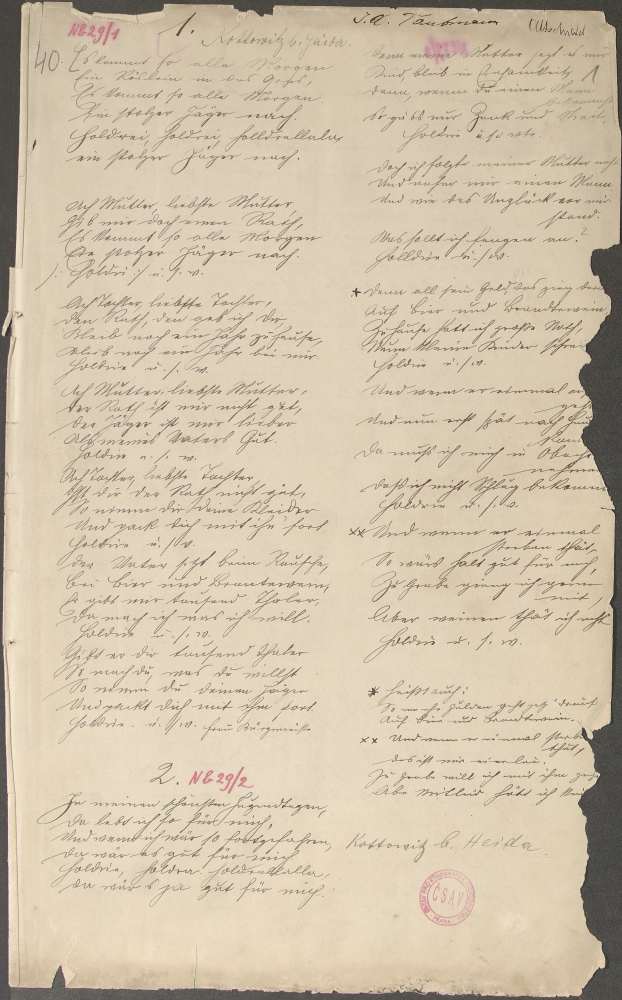 NB 29/1
1.
J. A. Taubmann
Kottowitz b. Haida.
40.
Es kommt so alle Morgen
Ein in das Gras,
Es kommt so alle Morgen
Ein stolzer Jäger nach.
Holdrei, holdrei, holldrellala
ein stolzer Jäger nach.
Ach Mutter, liebste Mutter
gib mir doch einen Rath,
Es kommt so alle Morgen
Ein stolzer Jäger nach.
/: Holdri :/ u. s. w.
Ach Tochter, liebste Tochter,
Den Rath, den geb ich dir
Bleib noch ein Jahr zu Hause,
bleib noch ein Jahr bei mir
Holdrie u. s. w.
Ach Mutter, liebste Mutter,
der Rath ist mir nicht gut,
Der Jäger ist mir lieber
Als meines Vaters Gut.
Holdrie u. s. w.
Ach Tochter, liebste Tochter
Ist dir der Rath nicht gut,
So nimm dir deine Kleider
Und pack dich mit ihm fort
Holdrie u. s. w.
Der Vater sitzt beim
Bei Bier und Brantewein,
Er gibt mir tausend Thaler,
Da mach ich was ich will.
Holdrie u. s. w.
Gibt er dir tausend Thaler
So mach du, was du willst
So nimm du deinen Jäger
Und packt dich mit ihm fort
Holdrie. u. s. w. Frau Bürgermeister
2. NB 29/2
In meinen schönsten Jugendtagen,
Da lebt ich so für mich,
Und wenn ich wär so fortgefahren,
Da wär es gut für mich
Holdrie, holdra holdrallalla,
Da wär's ja gut für mich.
Denn meine Mutter sagt es mir
Kind bleib in Einsamkeit,
Denn, wenn du einen Mann
So gibts nur Zank und Streit,
Holdrie u. s. w.
Doch ich folgte meiner Mutter nicht
Und nahm mir einen Mann
Und wie das Unglück vor mir
stand.
Was sollt ich fangen an?
Holldrie u. s. w.
* Denn all sein Geld das ging
Auf Bier und Brandtewein
Zu Hause hatt ich große Noth,
kleine Kinder
Holdrie u. s. w.
Und wenn er einmal
Und nun erst spät nach
Da muß ich mich in Obacht
nehmen
Daß ich nicht Schläg bekomme
Holdrie u. s. w.
** Und wenn er einmal
sterben thät,
So wärs halt gut für mich,
Zu Grabe gieng ich gern
mit,
Aber weinen thät ich nicht
Holdrie u. s. w.
* heißt auch:
Auf Bier und Brandtewein.
** Und wenn er einmal
thät,
das ist mir einerlei.
Zu Grabe will ich mit ihm
Aber Mitleid hätt ich
Kottowitz b. Heida.
ČSAV